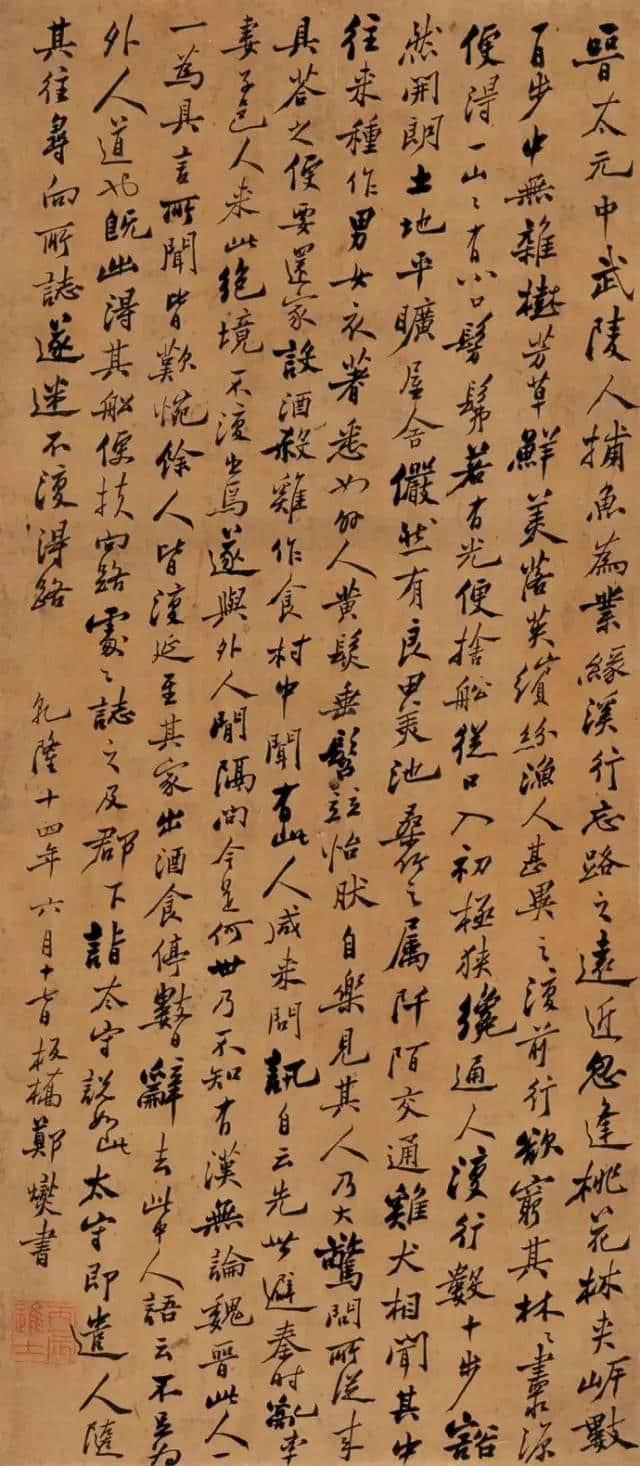 晉太元中武陵人捕魚為業緣溪行忘路之遠近忽逢桃花林夾岸數
百步中無雜樹芳草鮮美落英繽紛漁人甚異之復前行欲窮其林林盡水源
便得一山山有小口髣髴若有光便捨船從口入初極狹纔通人復行數十步豁
然開朗土地平曠屋舍儼然有良田美池桑竹之属阡陌交通雞犬相聞其中
往來種作男女衣著悉如外人黄髮垂髫竝怡然自樂見其人乃大驚問所從来
具荅之便要還家設酒殺雞作食村中聞有此人咸来問訊自云先世避秦時亂率
妻子邑人来此絶境不復出焉遂與外人間隔問今是何世乃不知有漢無論魏晉此人一
一為具言所聞皆歎惋餘人皆復延至其家出酒食停數日辭去此中人語云不足為
外人道也既出得其船便扶向路處處誌之及郡下詣太守説如此太守即遣人隨
其往尋向所誌遂迷不復得路
乾隆十四年六月十 板橋鄭燮書